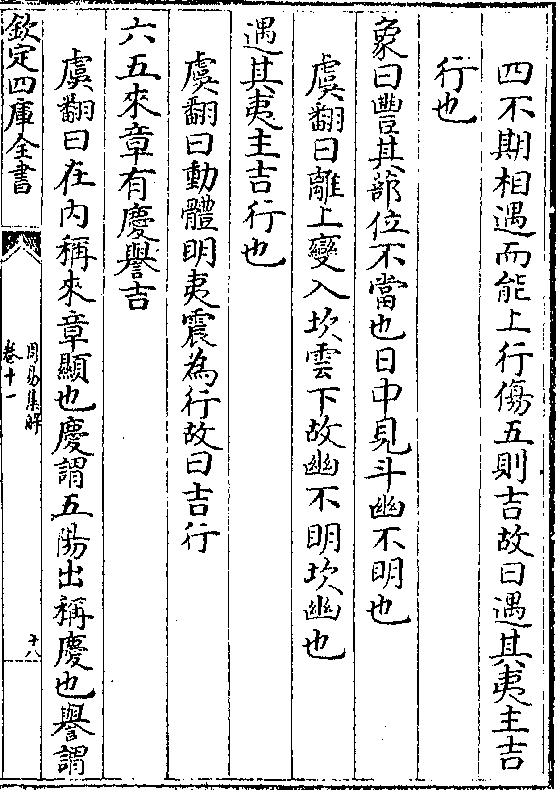 四不期相遇而能上行傷五則吉故曰遇其夷主吉
行也
象曰豐其蔀位不當也日中見斗幽不明也
虞翻曰離上變入坎雲下故幽不明坎幽也
遇其夷主吉行也
虞翻曰動體明夷震為行故曰吉行
六五來章有慶譽吉
虞翻曰在内稱來章顯也慶謂五陽出稱慶也譽謂
欽定四庫全書
周易集解
卷十一
十八